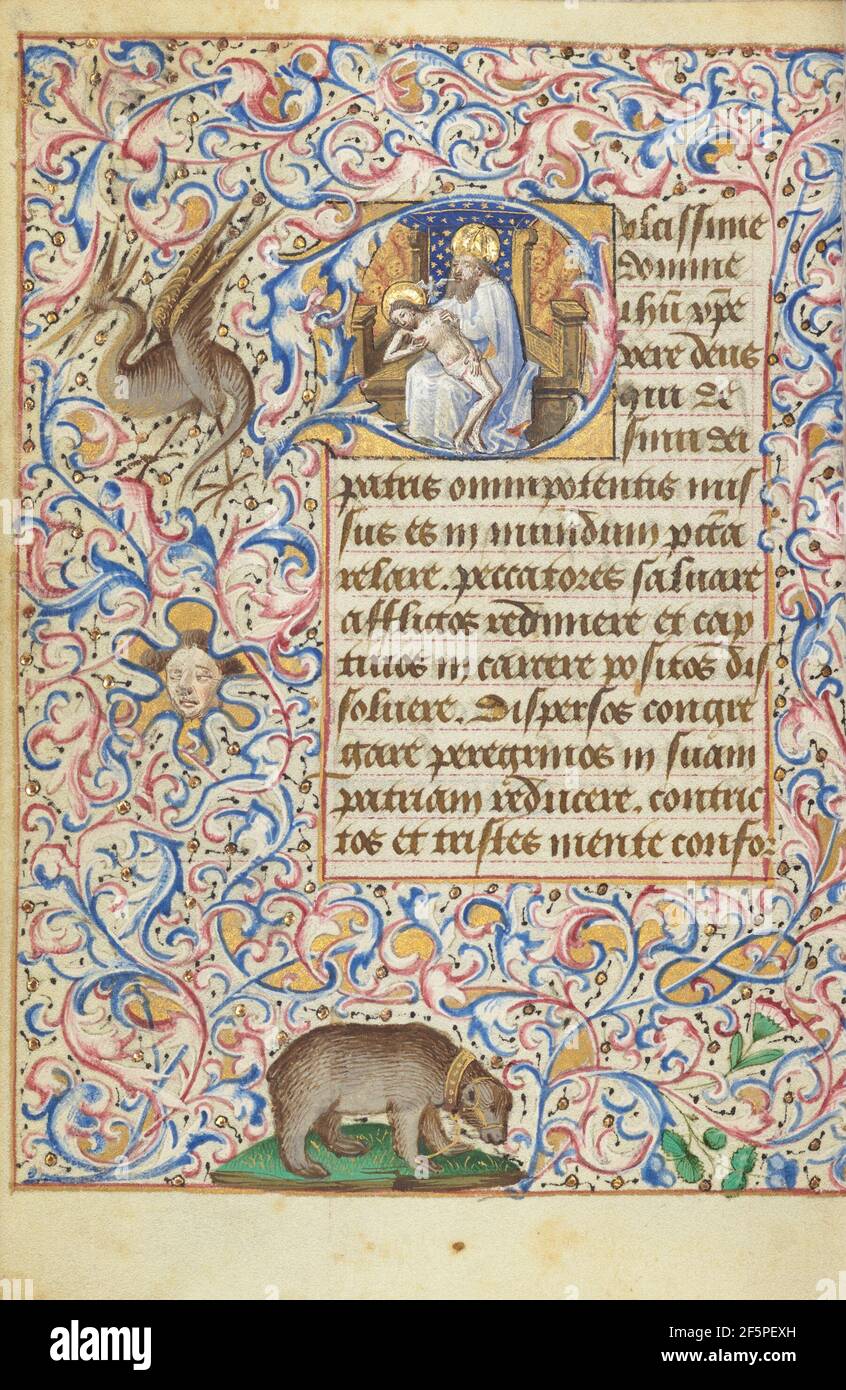 Dulcissime
domine
ihu xpe
vere deus
qui de
sinu dei
patris omnipotentis mis
sus es in mundum pcca
relare. peccatores saluare
afflictos redimere et cap
tiuos in carcere positos dis
soluere. Dispersos congre
gare peregrinos in suam
patriam reducere. contric
tos et tristes mente confor
alamy
alamy
Image ID: 2F5PEXH
www.alamy.com